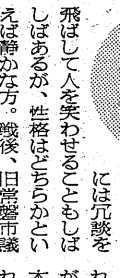 には冗談を
飛ばして人を笑わせることもしば
しばあるが、性格はどちらかとい
えば静かな方。戦後、旧常磐市議